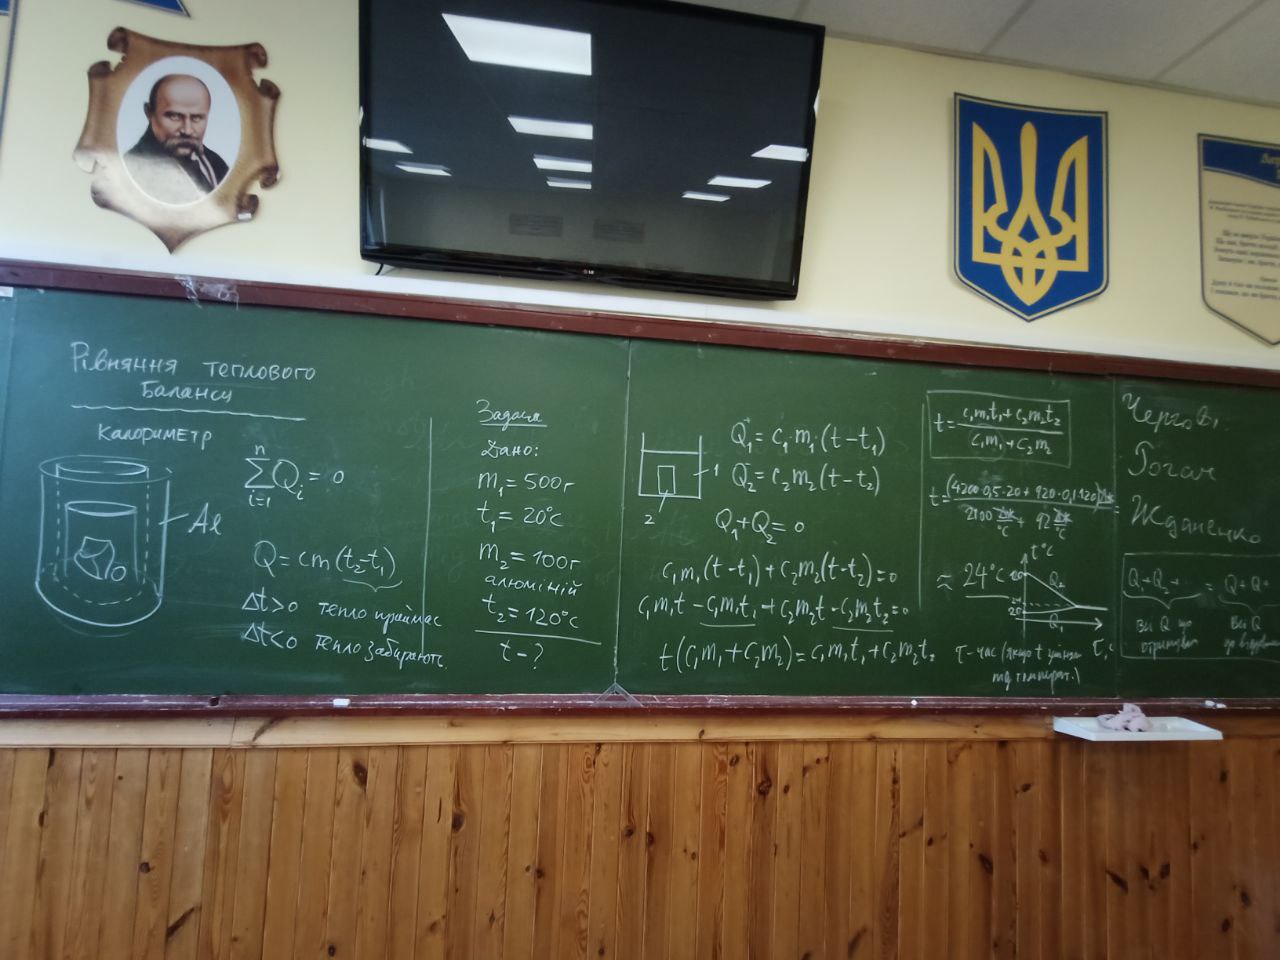 Рівняння теплового
балансу
калориметр
Al
n
∑ Qᵢ = 0
i=1
Q = cm(t₂-t₁)
Δt>0 тепло приймає
Δt<0 тепло забирають
Задача
Дано:
m₁ = 500г
t₁ = 20°C
m₂ = 100г
алюміній
t₂ = 120°C
t - ?
1
2
Q₁⁺ = c₁·m₁·(t-t₁)
Q₂⁻ = c₂m₂(t-t₂)
Q₁+Q₂ = 0
c₁m₁(t-t₁) + c₂m₂(t-t₂) = 0
c₁m₁t - c₁m₁t₁ + c₂m₂t - c₂m₂t₂ = 0
t(c₁m₁ + c₂m₂) = c₁m₁t₁ + c₂m₂t₂
t = (c₁m₁t₁ + c₂m₂t₂)/(c₁m₁ + c₂m₂)
t = (4200·0,5·20 + 920·0,1·120)Дж / (2100 Дж/°C + 92 Дж/°C) =
≈ 24°C
t°C
24
20
Q₂
Q₁
τ - час (якщо t
температ.)
Чергові:
Рогач
Жданенко
Q₁+Q₂+... = Q+Q+
Всі Q що
отримують
Всі Q
LG